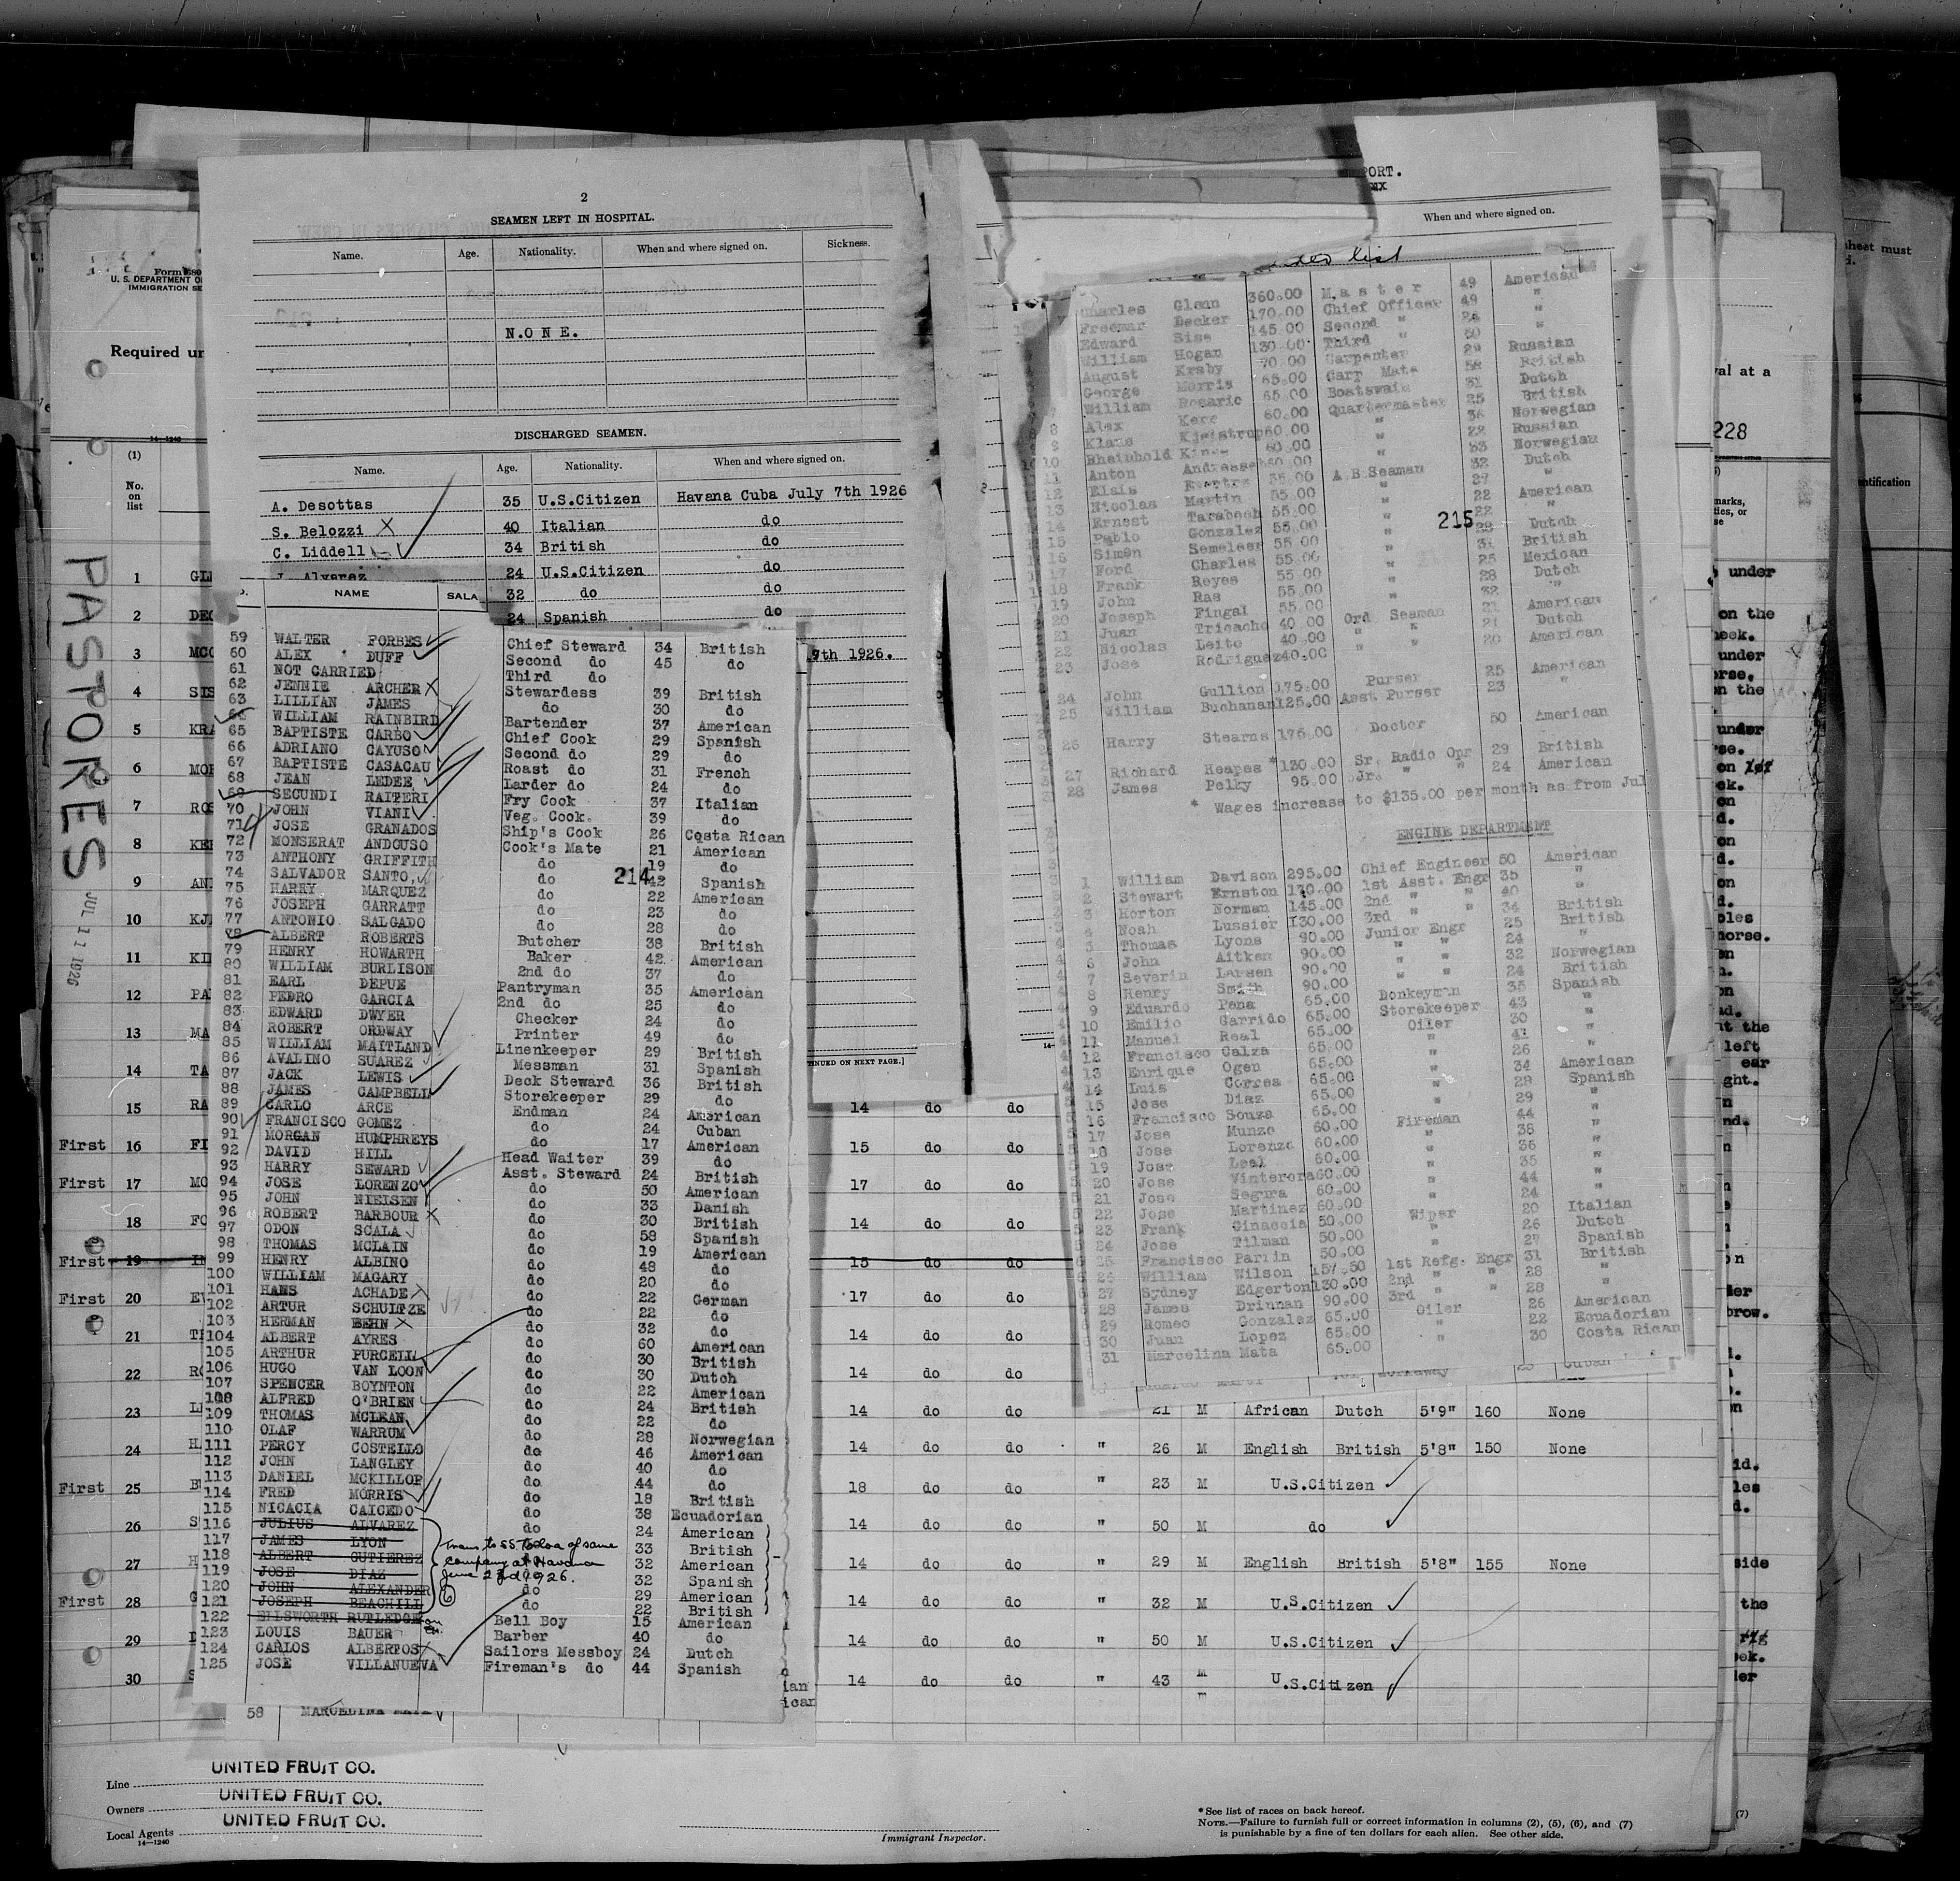 2
SEAMEN LEFT IN HOSPITAL.
Name. Age. Nationality. When and where signed on. Sickness.
N.O N E.
DISCHARGED SEAMEN.
Name. Age. Nationality. When and where signed on.
A. Desottas 35 U.S.Citizen Havana Cuba July 7th 1926
S. Belozzi X 40 Italian do
C. Liddell 34 British do
Alvarez 24 U.S.Citizen do
32 do do
24 Spanish do
7th 1926.
NAME SALA
59 WALTER FORBES Chief Steward 34 British
60 ALEX DUFF Second do 45 do
61 NOT CARRIED Third do
62 JENNIE ARCHER X Stewardess 39 British
63 LILLIAN JAMES do 30 do
WILLIAM RAINBIRD Bartender 37 American
65 BAPTISTE CARBO Chief Cook 29 Spanish
66 ADRIANO CAYUSO Second do 29 do
67 BAPTISTE CASACAU Roast do 31 French
68 JEAN LEDEE Larder do 24 do
69 SECUNDI RAITERI Fry Cook 37 Italian
70 JOHN VIANI Veg. Cook. 39 do
71 JOSE GRANADOS Ship's Cook 26 Costa Rican
72 MONSERAT ANDOUSO Cook's Mate 21 American
73 ANTHONY GRIFFITH do 19 do
74 SALVADOR SANTO. do 42 Spanish
214
75 HARRY MARQUEZ do 22 American
76 JOSEPH GARRATT do 23 do
77 ANTONIO SALGADO do 28 do
78 ALBERT ROBERTS Butcher 38 British
79 HENRY HOWARTH Baker 42 American
80 WILLIAM BURLISON 2nd do 37 do
81 EARL DEPUE Pantryman 35 American
82 PEDRO GARCIA 2nd do 25 do
83 EDWARD DWYER Checker 24 do
84 ROBERT ORDWAY Printer 49 do
85 WILLIAM MAITLAND Linenkeeper 29 British
86 AVALINO SUAREZ Messman 31 Spanish
87 JACK LEWIS Deck Steward 36 British
88 JAMES CAMPBELL Storekeeper 29 do
89 CARLO ARCE Endman 24 American
90 FRANCISCO GOMEZ do 24 Cuban
91 MORGAN HUMPHREYS do 17 American
92 DAVID HILL Head Waiter 39 do
93 HARRY SEWARD Asst. Steward 24 British
94 JOSE LORENZO do 50 American
95 JOHN NIELSEN do 33 Danish
96 ROBERT BARBOUR X do 30 British
97 ODON SCALA do 58 Spanish
98 THOMAS MCLAIN do 19 American
99 HENRY ALBINO do 48 do
100 WILLIAM MAGARY do 20 do
101 HANS ACHADE X do 22 German
102 ARTUR SCHUITZE do 22 do
103 HERMAN BEHN X do 32 do
104 ALBERT AYRES do 60 American
105 ARTHUR PURCELL do 30 British
106 HUGO VAN LOON do 30 Dutch
107 SPENCER BOYNTON do 22 American
108 ALFRED O'BRIEN do 24 British
109 THOMAS MCLEAN do 22 do
110 OLAF WARRUM do 28 Norwegian
111 PERCY COSTELLO do 46 American
112 JOHN LANGLEY do 40 do
113 DANIEL MCKILLOP do 44 do
114 FRED MORRIS do 18 British
115 NICACIA CAICEDO do 38 Ecuadorian
116 JULIUS ALVAREZ do 24 American
117 JAMES LYON 33 British
118 ALBERT GUTIEREZ 32 American
119 JOSE DIAZ 32 Spanish
120 JOHN ALEXANDER do 29 American
121 JOSEPH BEACHILL do 22 British
Trans to SS Toloa of same
company at Havana
June 23rd 1926.
122 ELLSWORTH RUTLEDGE Bell Boy 15 American
123 LOUIS BAUER Barber 40 do
124 CARLOS ALBERTOS Sailors Messboy 24 Dutch
125 JOSE VILLANUEVA Fireman's do 44 Spanish
58 MARCELINA MATA
PORT.
When and where signed on.
list
Charles Glenn 360.00 Master 49 American
Freemar Decker 170.00 Chief Officer 49 "
Edward Sise 145.00 Second " "
William Hogan 130.00 Third " 50 "
August Krsby 70.00 Carpenter 29 Russian
George Morris 65.00 Carp Mate 58 British
7 William Rosaric 65.00 Boatswain 31 Dutch
8 Alex Kerr 60.00 Quartermaster 25 British
9 Klaus Kjeistrup 60.00 " 36 Norwegian
10 Rheinhold 60.00 " 22 Russian
11 Anton " 53 Norwegian
12 Elais A B Seaman 32 Dutch
13 Nicolas Martin 55.00 " 27 "
14 Ernest Tarabosh 55.00 " 22 American
15 Pablo Gonzalez 55.00 " 22 "
215
16 Simon Semeleer 55.00 " Dutch
17 Ford Charles 55.00 " British
18 Frank Reyes 55.00 " 25 Mexican
19 John Ras 55.00 " 28 Dutch
20 Joseph Fingal 55.00 " 32 "
21 Juan Tricache 40.00 Ord Seaman 21 American
22 Nicolas Leito 40.00 " " 21 Dutch
23 Jose Rodriguez 40.00 " " 20 American
24 John Gullion 175.00 Purser 25 American
25 William Buchanan 125.00 Asst Purser 23 "
26 Harry Stearns 175.00 Doctor 50 American
27 Richard Heapes *130.00 Sr. Radio Opr 29 British
28 James Pelky 95.00 Jr. " " 24 American
* Wages increase to $135.00 per month as from Jul
ENGINE DEPARTMENT
1 William Davison 295.00 Chief Engineer 50 American
2 Stewart Ernston 170.00 1st Asst. Engr 35 "
3 Horton Norman 145.00 2nd " " 40 "
4 Noah Lussier 130.00 3rd " " 34 British
5 Thomas Lyons 90.00 Junior Engr 25 British
6 John Aitken 90.00 " " 24 "
7 Severin Larsen 90.00 " " 32 Norwegian
8 Henry Smith 90.00 " " 24 British
9 Eduardo Pena 65.00 Donkeyman 35 Spanish
10 Emilio Garrido 65.00 Storekeeper 43 "
11 Manuel Real 65.00 Oiler 30 "
12 Francisco Calza 65.00 " 41 "
13 Enrique Ogen 65.00 " 26 "
14 Luis Correa 65.00 " 34 American
15 Jose Diaz 65.00 " 28 Spanish
16 Francisco Souza 65.00 " 29 "
17 Jose Munzo 60.00 Fireman 44 "
18 Jose Lorenzo 60.00 " 38 "
19 Jose Leal 60.00 " 36 "
20 Jose Vinterora 60.00 " 35 "
21 Jose Segura 60.00 " 44 "
22 Jose Martinez 60.00 " 24 "
23 Frank Ginaccia 50.00 Wiper 20 Italian
24 Jose Tilman 50.00 " 26 Dutch
25 Francisco Parrin 50.00 " 27 Spanish
26 William Wilson 157.50 1st Refg. Engr 31 British
27 Sydney Edgerton 130.00 2nd " " 28 "
28 James Drinnan 90.00 3rd " " 28 "
29 Romeo Gonzalez 65.00 Oiler 26 American
30 Juan Lopez 65.00 " 22 Ecuadorian
31 Marcelina Mata 65.00 " 30 Costa Rican
Form 680
U. S. DEPARTMENT O
IMMIGRATION SE
Required un
val at a
228
14-1240
(1)
No.
on
list
PASTORES
JUL 11 1926
1 GL
2 DE
3 MC
4 SIS
5 KRA
6 MOR
7 ROS
8 KE
9 AN
10 KJ
11 KI
12 PA
13 MA
14 TA
[CONTINUED ON NEXT PAGE.]
15 RA 14 do do
First 16 FI 15 do do
First 17 MO 17 do do
18 FO 14 do do
First 19 15 do do
First 20 17 do do
21 14 do do
22 RO 14 do do
23 14 do do 21 M African Dutch 5'9" 160 None
24 H 14 do do " 26 M English British 5'8" 150 None
First 25 B 18 do do " 23 M U.S.Citizen
26 S 14 do do " 50 M do
27 H 14 do do " 29 M English British 5'8" 155 None
First 28 G 14 do do " 32 M U.S.Citizen
29 D 14 do do " 50 M U.S.Citizen
30 S 14 do do " 43 M U.S.Citizen
Line UNITED FRUIT CO.
Owners UNITED FRUIT CO.
Local Agents UNITED FRUIT CO.
14-1240
Immigrant Inspector.
* See list of races on back hereof.
NOTE.—Failure to furnish full or correct information in columns (2), (5), (6), and (7)
is punishable by a fine of ten dollars for each alien. See other side.
(7)